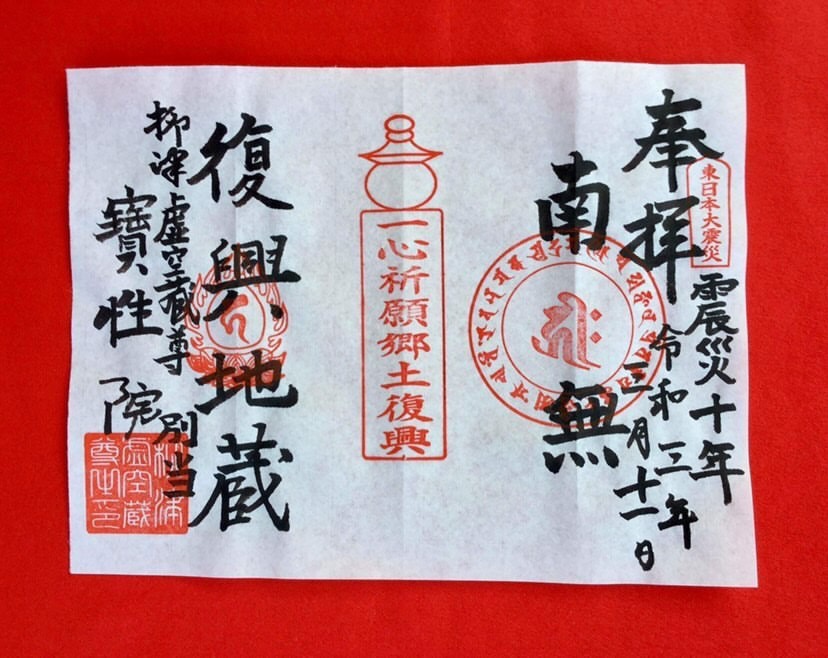 東日本大震災
奉拝
震災十年
令和三年
三月十一日
南無
一心祈願郷土復興
復興地蔵
柳津虚空蔵尊
別当
寶性院
柳津
虚空蔵
尊也印